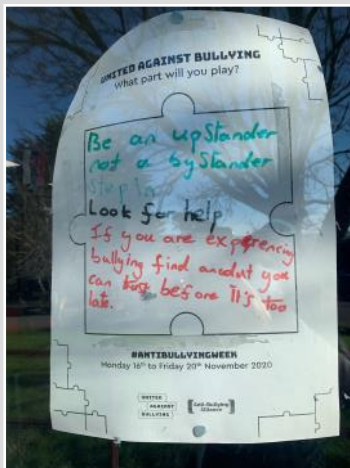 UNITED AGAINST BULLYING
What part will you play?
Be an upStander
not a byStander
Step In
Look for help
If you are experencing
bullying find an adult you
can trust before it's too
late.
#ANTIBULLYINGWEEK
Monday 16th to Friday 20th November 2020
UNITED
AGAINST
BULLYING
Anti-Bullying
Alliance